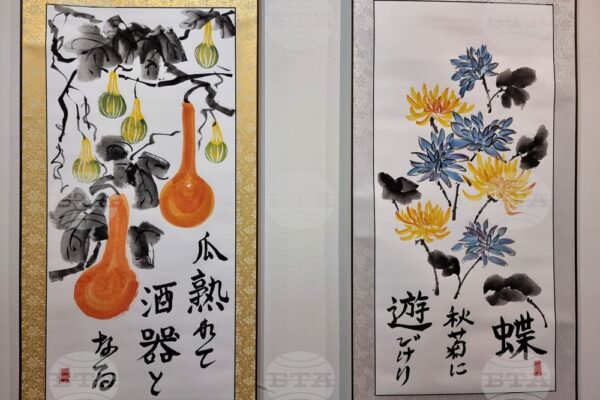 瓜熟れて
酒器と
なる
蝶
秋菊に
遊びけり